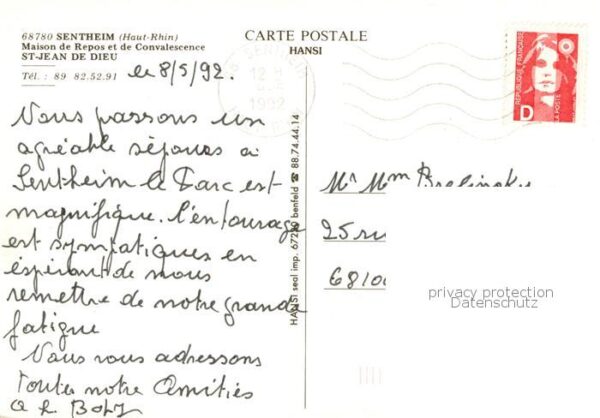 68780 SENTHEIM (Haut-Rhin)
Maison de Repos et de Convalescence
ST-JEAN DE DIEU
Tél. : 89 82.52.91
le 8/5/92.
Nous passons un
agréable séjours a
Sentheim le Parc est
magnifique. l'entourage
est sympatiques en
éspirant de nous
remettre de notre grande
fatigue
Nous vous adressons
toutes notre Amitiés
CARTE POSTALE
HANSI
SENTHEIM
12 H
1992
REPUBLIQUE FRANÇAISE
LA POSTE
D
HANSI seal imp. 67230 benfeld ☎ 88.74.44.14
Mr Mm
25 ru
6810
privacy protection
Datenschutz